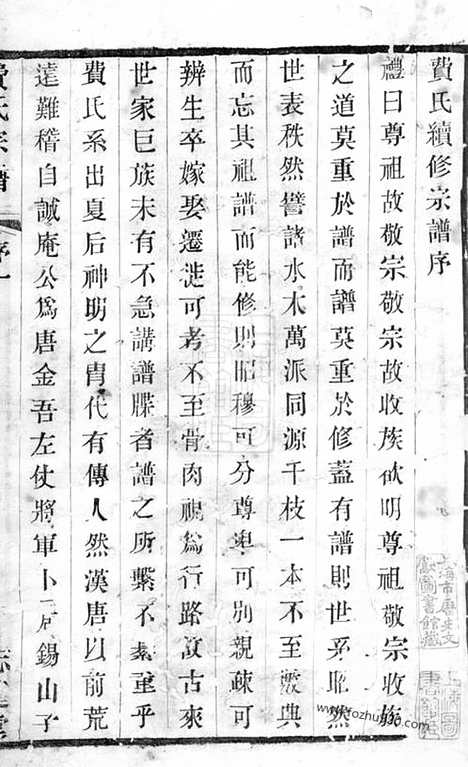 費氏續修宗譜序
禮曰尊祖故敬宗敬宗故收族欲明尊祖敬宗收族
之道莫重於譜而譜莫重於修蓋有譜則世系昭然
世表秩然譬諸水木萬派同源千枝一本不至數典
而忘其祖譜而能修則昭穆可分尊卑可別親疎可
辨生卒嫁娶遷徙可考不至骨肉視爲行路故古來
世家巨族未有不急講譜牒者譜之所繫不綦重乎
費氏系出夏后神明之胄代有傳人然漢唐以前荒
遠難稽自誠庵公爲唐金吾左仗將軍卜居錫山子
費氏宗譜
序一
上海市歷史文
獻圖書館藏
www.fozhu920.com